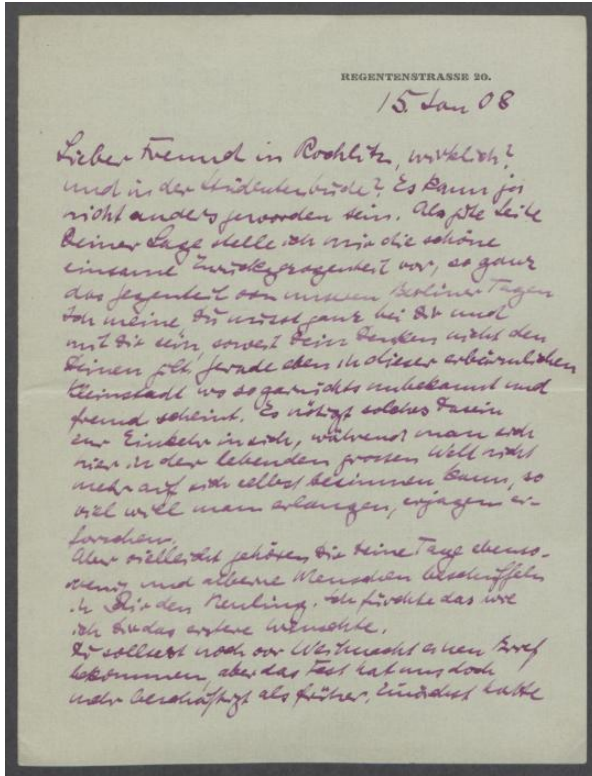 REGENTENSTRASSE 20.
15. Jan 08
Lieber Freund in Rochlitz, wirklich?
und in der Studentenbude? Es kann ja
nicht anders geworden sein. Als gute Seite
Deiner Lage stelle ich mir die schöne
einsame Zurückgezogenheit vor, so ganz
das Gegenteil von unseren Berliner Tagen
Ich meine, Du musst ganz bei Dir und
mit Dir sein, soweit Dein Denken nicht den
Deinen gilt, gerade eben in dieser erbärmlichen
Kleinstadt wo so garnichts unbekannt und
fremd scheint. Es nötigt solches Dasein
zur Einkehr in sich, während man sich
hier in der lebenden grossen Welt nicht
mehr auf sich selbst besinnen kann, so
viel will man erlangen, erjagen er-
forschen.
Aber vielleicht gehören Dir Deine Tage ebenso-
wenig und alberne Menschen beschnüffeln
in Dir den Neuling. Ich fürchte das wie
ich Dir das erstere wünschte.
Du solltest noch vor Weihnacht einen Brief
bekommen, aber das Fest hat uns doch
mehr beschäftigt als früher. Zunächst hatte